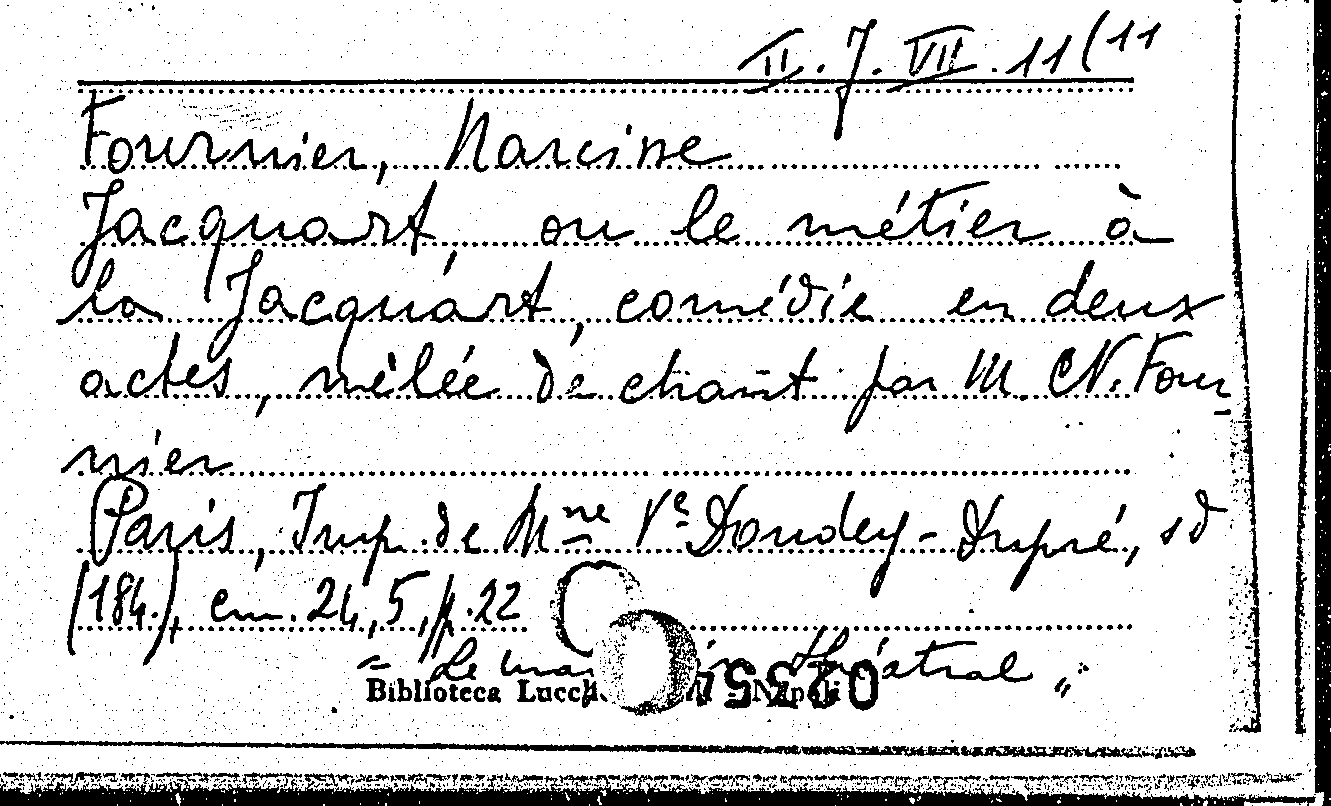 II. J. VII. 11(11
Fournier, Narcisse
Jacquart, ou le métier à
la Jacquart, comédie en deux
actes, mêlée de chant par M. N. Four-
nier
Paris, Imp. de Mme Ve Dondey-Dupré, sd
(184.), cm. 24,5, p. 22
"Le théatral"
Biblioteca Napoli